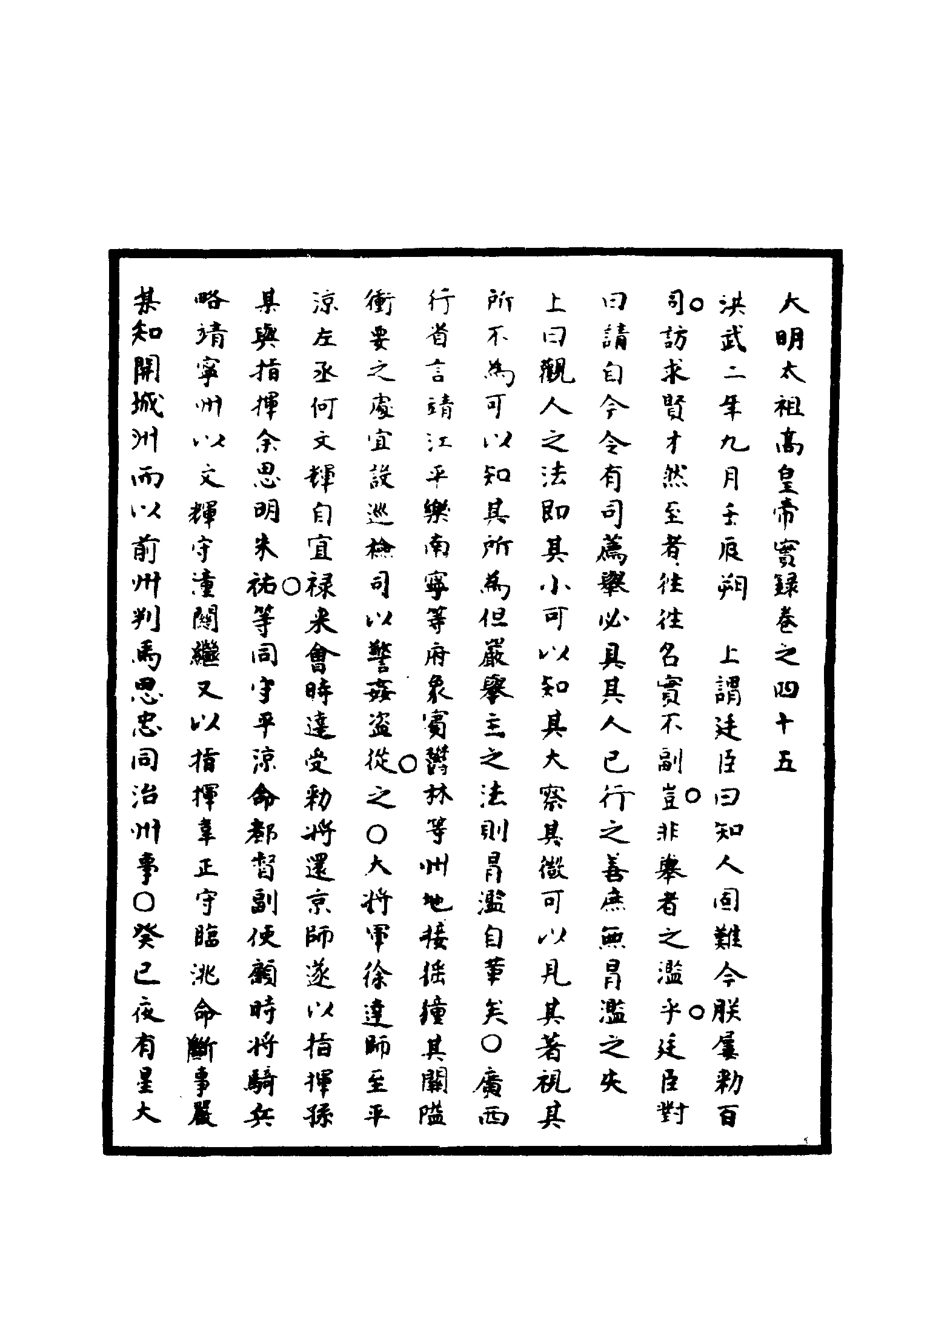 大明太祖高皇帝實録卷之四十五
洪武二年九月壬辰朔　上謂廷臣曰知人固難今朕屢勅百
司訪求賢才然至者往往名實不副豈非舉者之濫乎廷臣對
曰請自今令有司薦舉必具其人已行之善庶無冒濫之失
上曰觀人之法即其小可以知其大察其微可以見其著視其
所不為可以知其所為但嚴舉主之法則冒濫自革矣〇廣西
行省言靖江平樂南寧等府象賓鬱林等州地接猺獞其關隘
衝要之處宜設巡檢司以警姦盜從之〇大將軍徐達師至平
涼左丞何文輝自宜祿来會時達受勅將還京師遂以指揮孫
某與指揮余思明朱祐等同守平涼命都督副使顧時將騎兵
略靖寧州以文輝守潼關繼又以指揮韋正守臨洮命斷事嚴
某知開城州而以前州判馬思忠同治州事〇癸已夜有星大